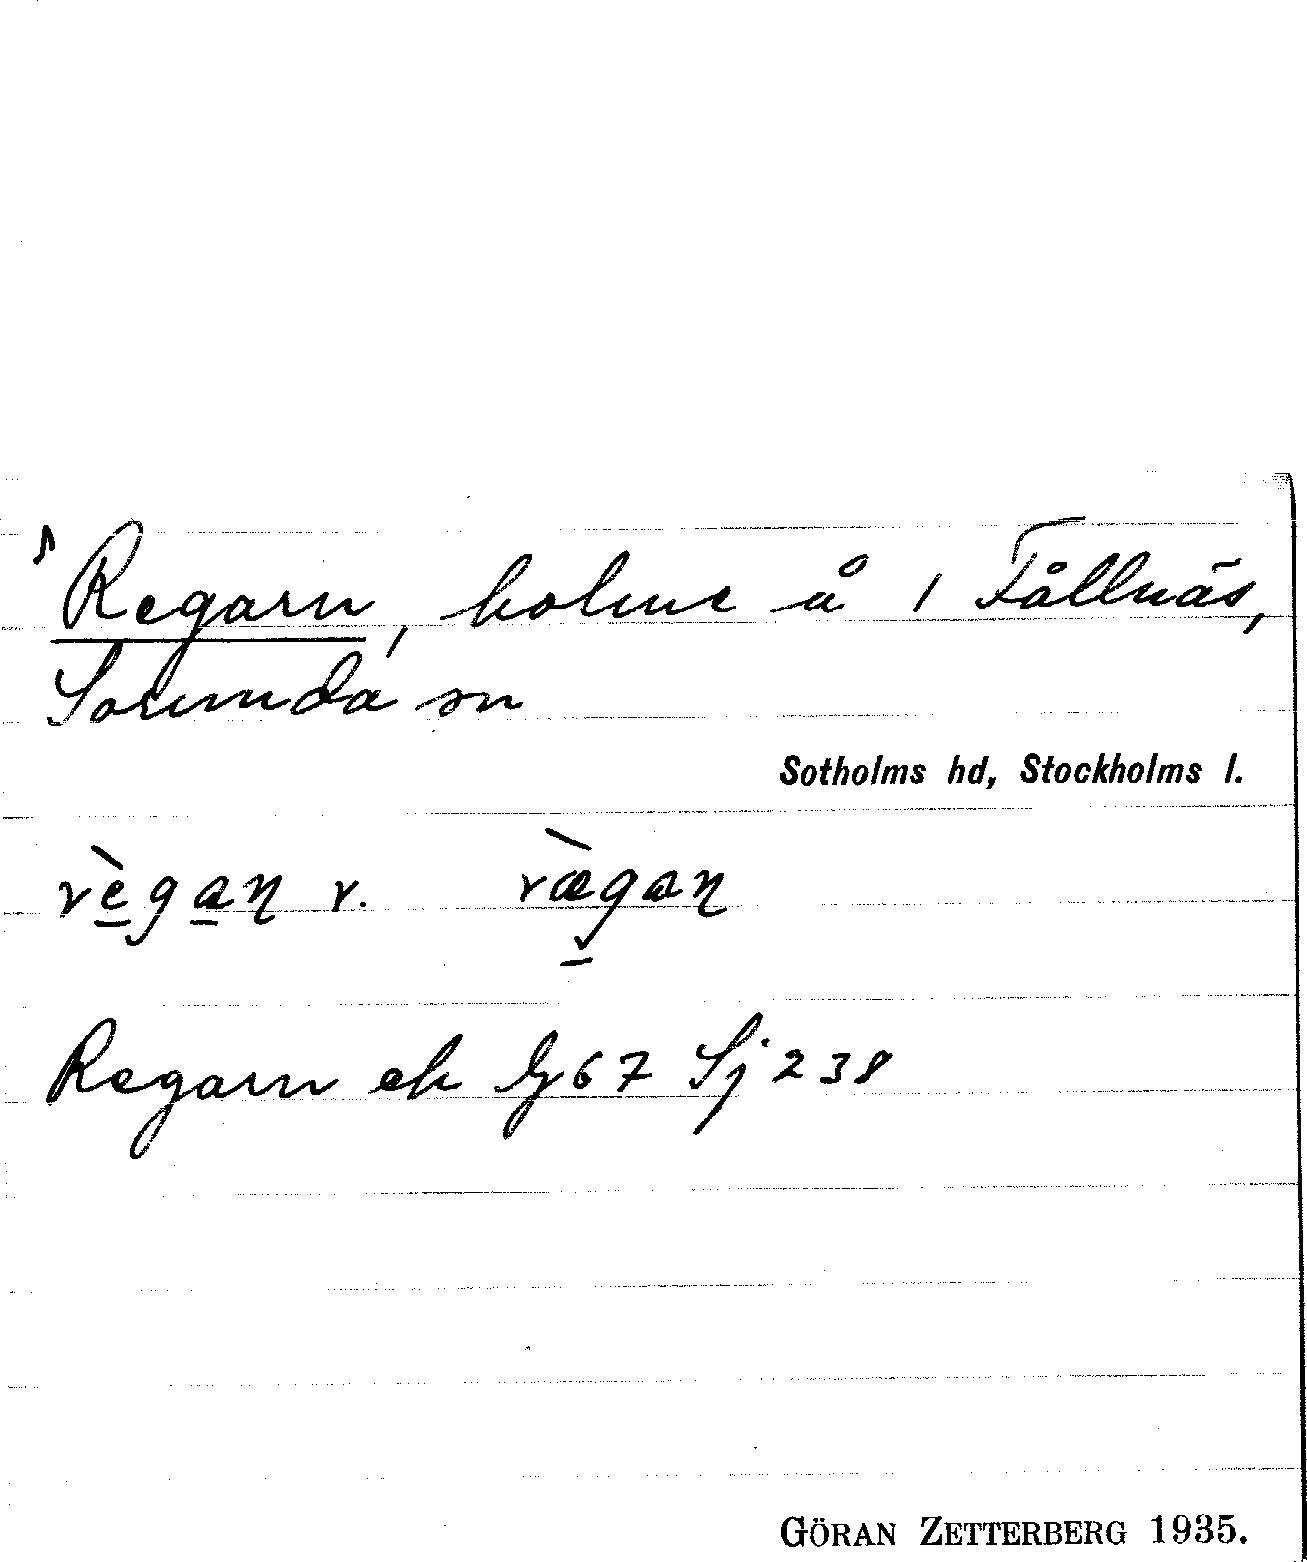 Regarn, holme å 1 Fållnäs,
Sorunda sn
Sotholms hd, Stockholms l.
règaɳ r. rægaɳ
Regarn ek 67 Sj 238
GÖRAN ZETTERBERG 1935.